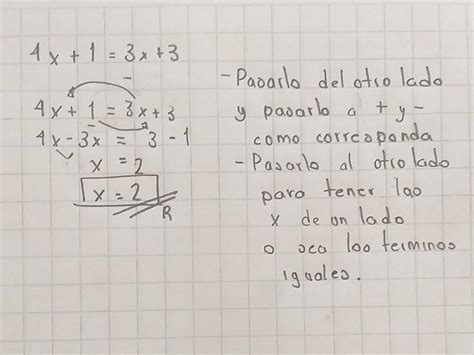 4x + 1 = 3x + 3
4x + 1 = 3x + 3
4x - 3x = 3 - 1
x = 2
x = 2
R
- Pasarlo del otro lado
y pasarlo a + y -
como corresponda
- Pasarlo al otro lado
para tener las
x de un lado
o sea los terminos
iguales.